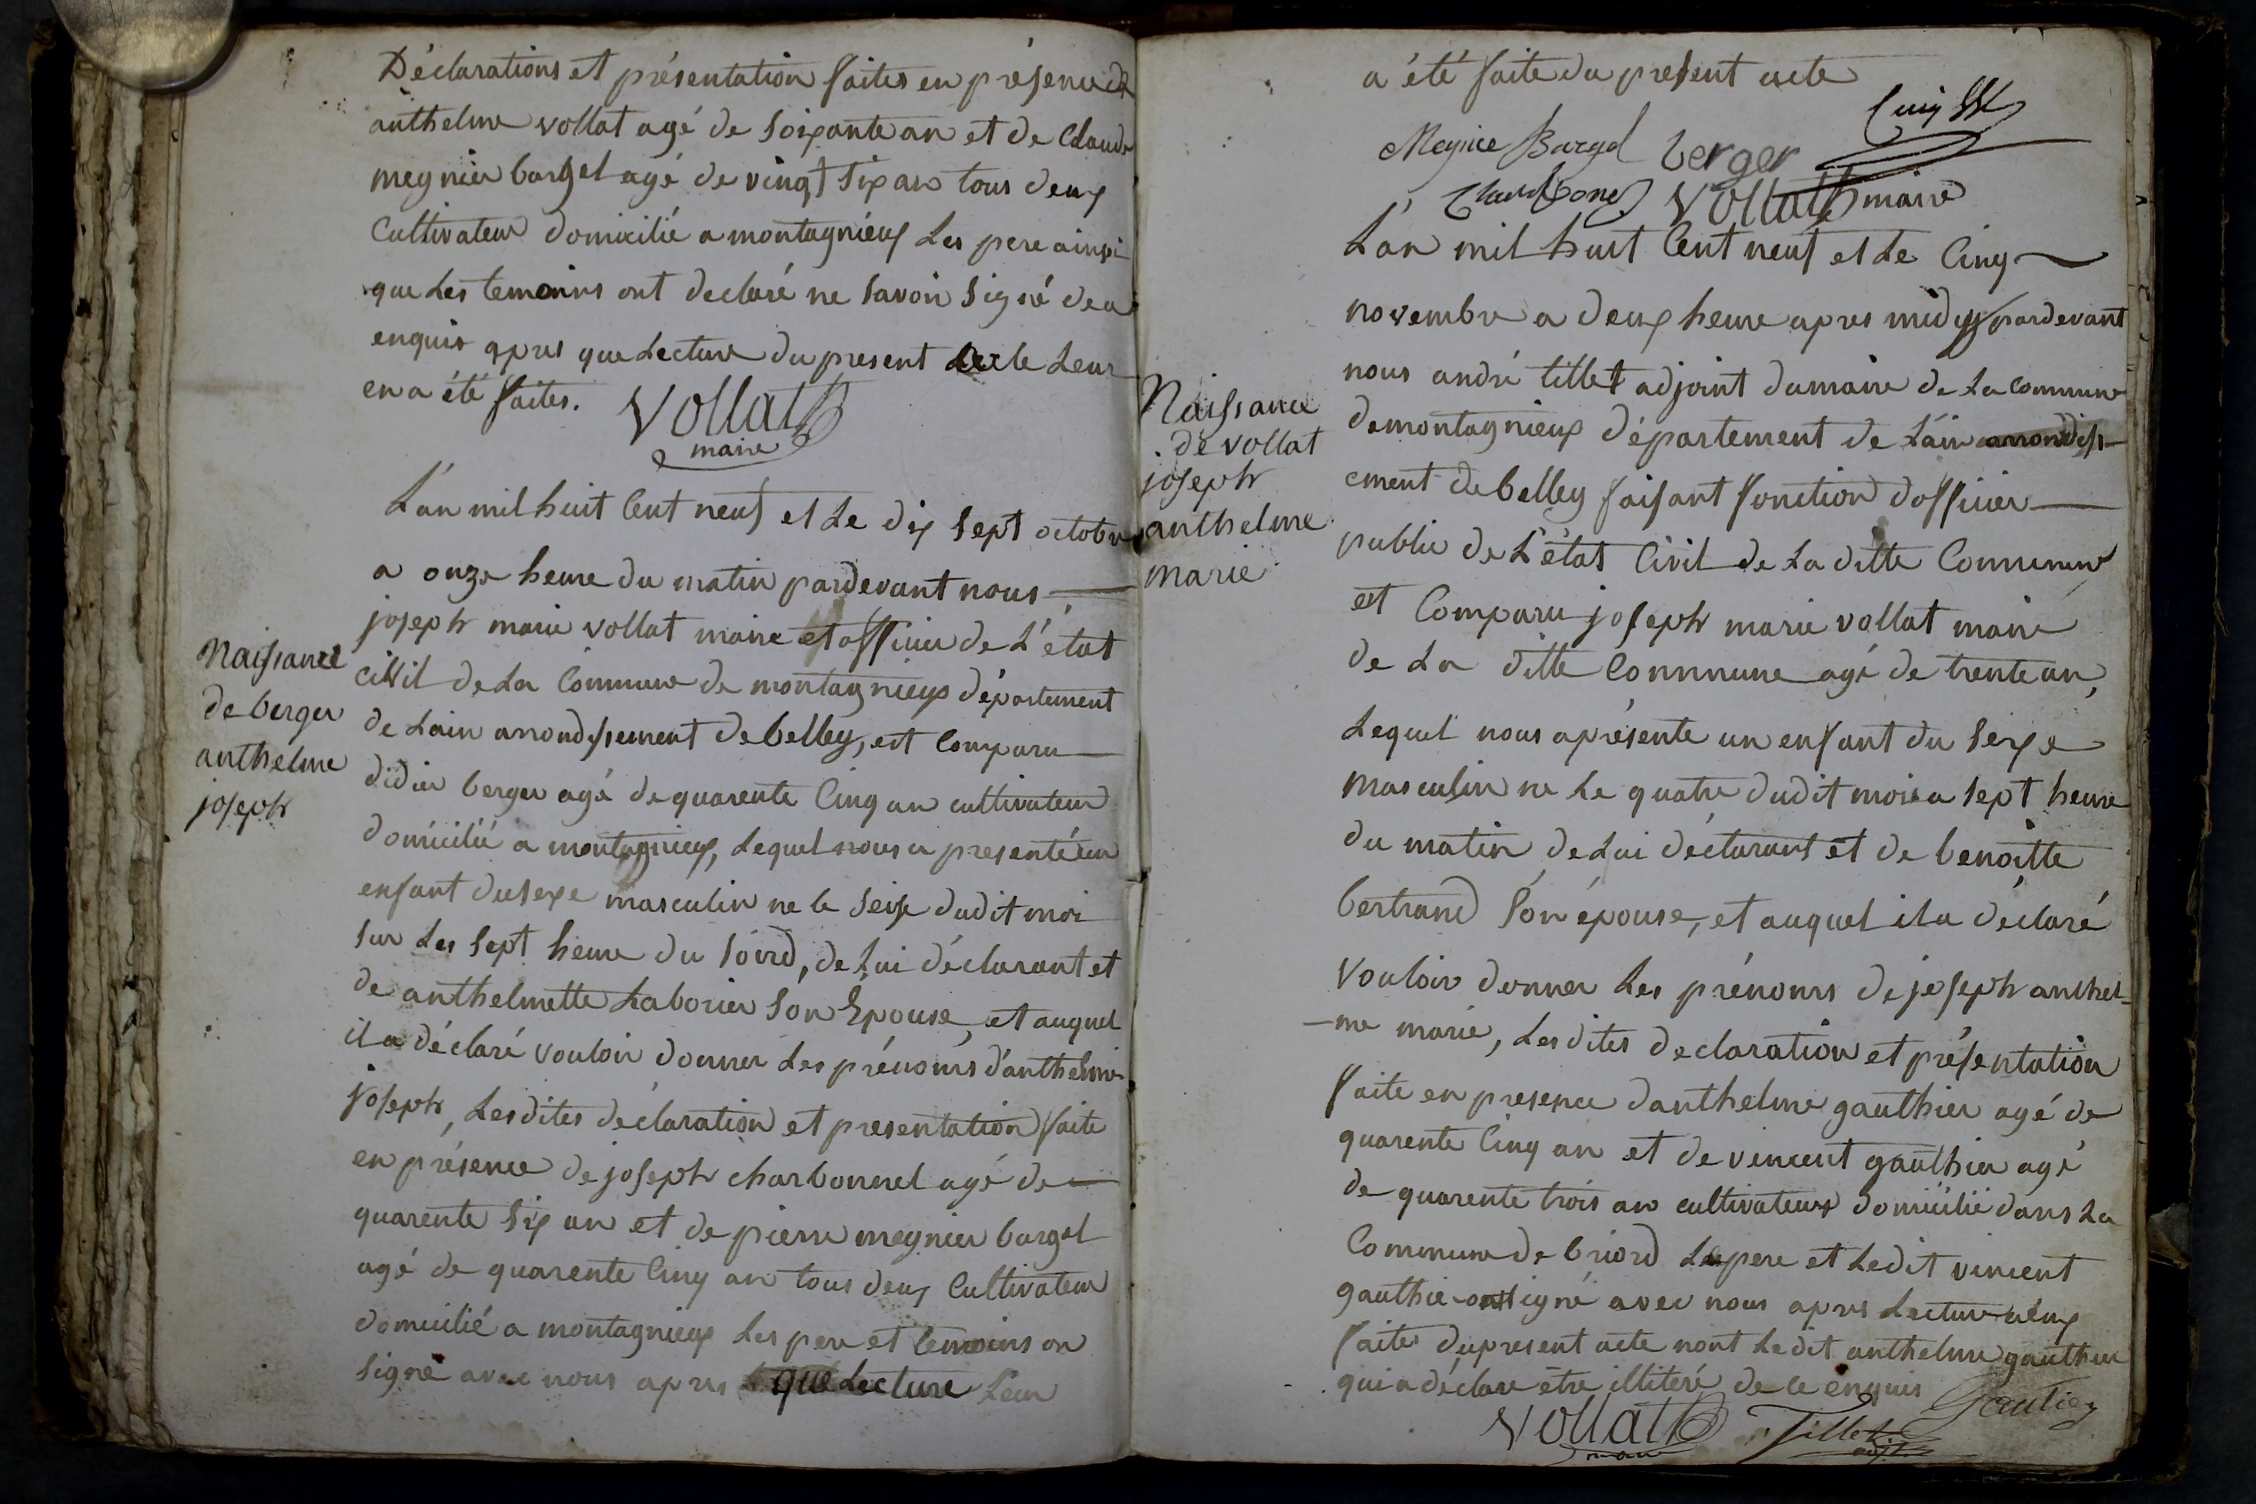 Déclarations et présentation faites en présence de
anthelme vollat agé de soixante an et de Claude
meynier bargel agé de vingt six an tous deux
Cultivateur domicilié a montagnieux Les pere ainsi
que Les temoins ont declaré ne savoir signé de ce
enquis apres que Lecture du present acte Leur
en a été faites. Vollat
maire
L'an mil huit Cent neuf et Le dix sept octobre
a onze heure du matin pardevant nous
joseph marie vollat maire et officier de L'état
civil de La Commune de montagnieux département
de Lain arrondissement de belley, est Comparu
didier berger agé de quarente Cinq an cultivateur
domicilié a montagnieux, Lequel nous a presenté un
enfant du sexe masculin ne le seize dudit moi
sur Les sept heure du soird, de Lui déclarant et
de anthelmette Laborier son Epouse, et auquel
il a déclaré vouloir donner Les prénoms d'anthelme
joseph, Lesdites déclaration et presentation faite
en présence de joseph charbonnel agé de
quarente six an et de pierre meynier bargel
agé de quarente Cinq an tous deux Cultivateur
domicilié a montagnieux Les pere et temoins on
signé avec nous apres que Lecture Leur
Naissance
de berger
anthelme
joseph
a été faite du present acte
Meynier Bargel berger
Vollat maire
Naissance
de vollat
joseph
anthelme
marie
L'an mil huit Cent neuf et Le Cinq
novembre a deux heure apres midy pardevant
nous andré tillet adjoint du maire de La commune
de montagnieux département de L'ain arrondiss-
ement de belley faisant fonction d'officier
public de L'état Civil de La ditte Commune
est Comparu joseph marie vollat maire
de La ditte Commune agé de trente an,
Lequel nous apresente un enfant du sexe
masculin ne Le quatre dudit mois a sept heure
du matin de Lui déclarant et de benoitte
bertrand son épouse, et auquel il a déclaré
vouloir donner Les prénoms de joseph anthel-
-me marie, Lesdites declaration et présentation
faite en presence d'anthelme gauthier agé de
quarente Cinq an et de vincent gauthier agé
de quarente trois an cultivateur domicilié dans La
Commune de briord Le pere et Ledit vincent
gauthier ont signé avec nous apres Lecture a eux
faites du present acte nont Ledit anthelme gauthier
qui a déclaré être illiteré de ce enquis Gautier
Vollat Tillet
maire adjt